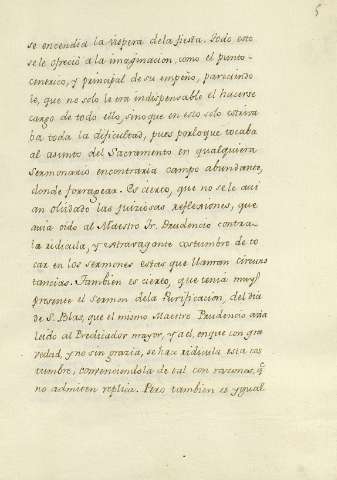 5
se encendia la vispera dela fiesta. Todo esto
sele ofreció a la imaginacion, como el punto
centrico, y principal de su empeño, pareciendo
le, que no solo le era indispensable el hacerse
cargo de todo ello, sino que en esto solo estriva
ba toda la dificultad, pues porloque tocaba
al asunto del Sacramento en qualquiera
Sermonario encontraria campo abundante,
donde forragear. Es cierto, que no se le avi
an olvidado las juiziosas reflexiones, que
avia oido al Maestro Fr. Prudencio contra
la ridicula, y extravagante costumbre de to
car en los sermones estas que llaman circuns
tancias. Tambien es cierto, que tenia muy
presente el Sermon dela Purificacion, del dia
de S. Blas, que el mismo Maestro Prudencio avia
leido al Predicador mayor, y a el, enque con gra
vedad, y no sin grazia, se haze ridicula esta cos
tumbre, convenciendola de tal con razones, q̃
no admiten replica. Pero tambien es ygual